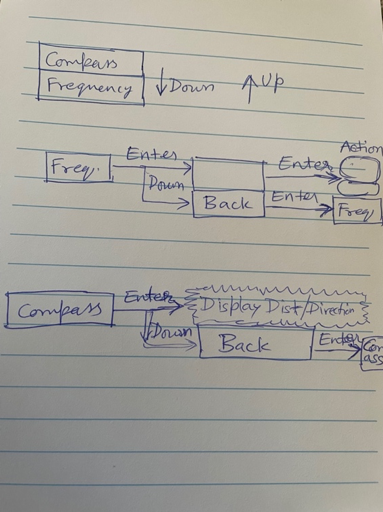 Compass
Frequency ↓Down ↑Up
Action
Freq. Enter Enter
Down
Back Enter Freq
Compass Enter Display Dist/Direction
Down
Back Enter Comp
ass